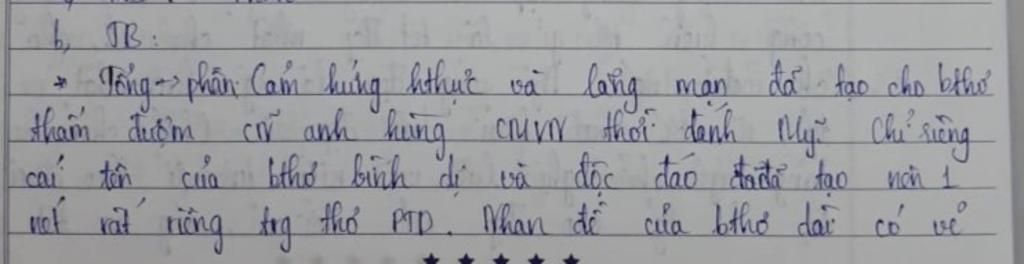 b, TB:
* Tổng → phân: Cảm hứng hthực và lãng mạn đã tạo cho bthơ
thấm đượm CN anh hùng CMVN thời đánh Mỹ. Chỉ riêng
cái tên của bthơ bình dị và độc đáo đã tạo nên 1
nét rất riêng trg thơ PTD. Nhan đề của bthơ dài có vẻ